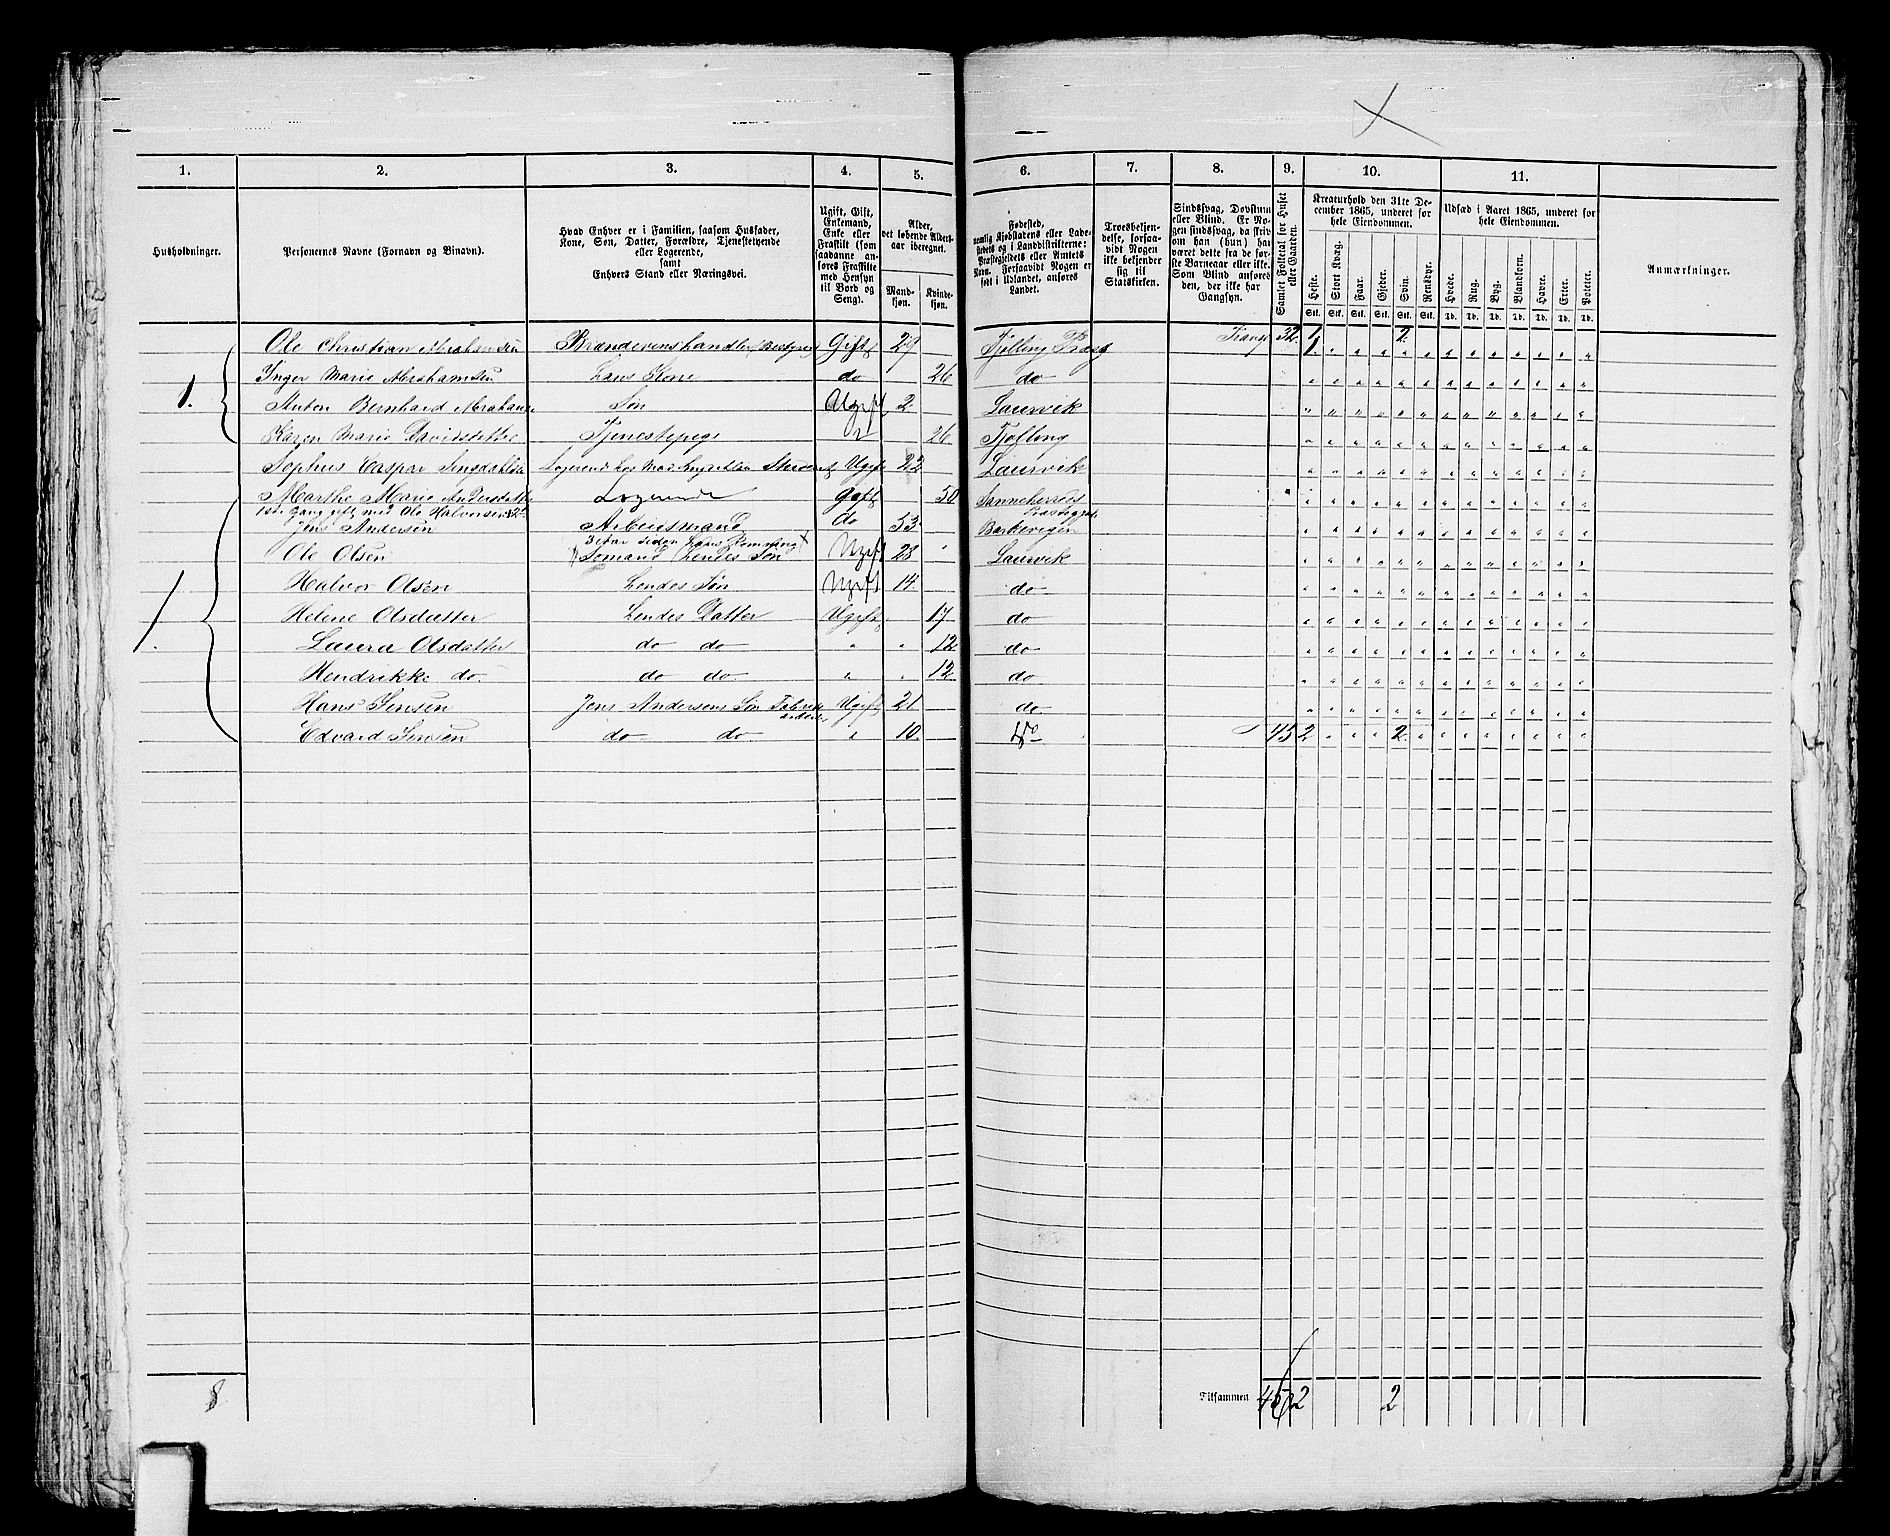 1. 2. 3. 4. 5. 6. 7. 8. 9. 10. 11.
Husholdninger.
Personernes Navne (Fornavn og Binavn).
Hvad Enhver er i Familien, saasom Husfader,
Kone, Søn, Datter, Forældre, Tjenestetyende
eller Logerende,
samt
Enhvers Stand eller Næringsvei.
Ugift, Gift,
Enkemand,
Enke eller
Fraskilt (som
saadanne an-
føres Fraskilte
med Hensyn
til Bord og
Seng).
Alder,
det løbende Alders-
aar iberegnet.
Mand-
kjøn.
Kvinde-
kjøn.
Fødested,
nemlig Kjøbstadens eller Lade-
stedets og i Landdistrikterne:
Præstegjeldets eller Amtets
Navn. Forsaavidt Nogen er
født i Udlandet, anføres
Landet.
Troesbekjen-
delse, forsaa-
vidt Nogen
ikke bekjender
sig til
Statskirken.
Sindssvag, Døvstum
eller Blind. Er No-
gen sindssvag, da skriv
om han (hun) har
været dette fra de før-
ste Barneaar eller ikke.
Som Blind anføres
den, der ikke har
Gangsyn.
Samlet Folketal for Huset
eller Gaarden.
Kreaturhold den 31te De-
cember 1865, underet for
hele Eiendommen.
Heste. Stort Kvæg. Faar. Gjeder. Svin. Rensdyr.
Stk. Stk. Stk. Stk. Stk. Stk.
Udsæd i Aaret 1865, underet for
hele Eiendommen.
Hvede. Rug. Byg. Blandkorn. Havre. Erter. Poteter.
Td. Td. Td. Td. Td. Td. Td.
Anmærkninger.
Ole Christian Abrahamsen Brændevinshandler Bestyrer Gift 29 Tjølling Præsg Transp 32 1 2
1. Inger Marie Abrahamsen Hans Kone do 26 do
Anton Bernhard Abrahamsen Søn Ugift 2 Laurvik
Karen Marie Davidsdatter Tjenestepige 26 Tjølling
Sophus Caspar Logerende hos Student Ugift 22 Laurvik
Marthe Marie Andersdatter Logerende Gift 50 Sannekerreds
1ste Gang gift med Ole Halvorsen Præstegjeld
Jens Andersen Arbeidsmand do 53 Barkevigen
3 Aar siden hans
Ole Olsen Sømand hendes Søn Ugift 23 Laurvik
Halvor Olsen hendes Søn Ugift 14 do
1. Helene Olsdatter hendes Datter Ugift 17 do
Laura Olsdatter do do " " 12 do
Hendrikke do do do " " 12 do
Hans Jensen Jens Andersens Søn Fabrik Ugift 21 do
arbeider
Edvard Jensen do do " 10 do 45 2 2
8
Tilsammen 45 2 2